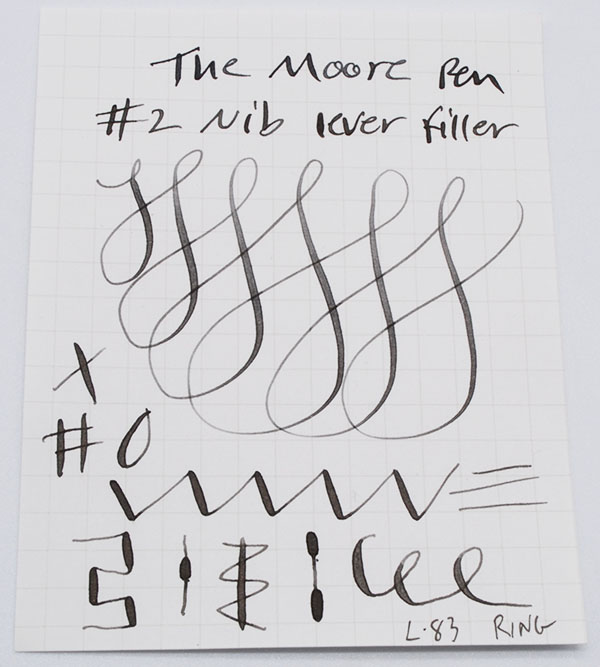 The Moore Pen
#2 Nib lever filler
X
#0
L-83 RING